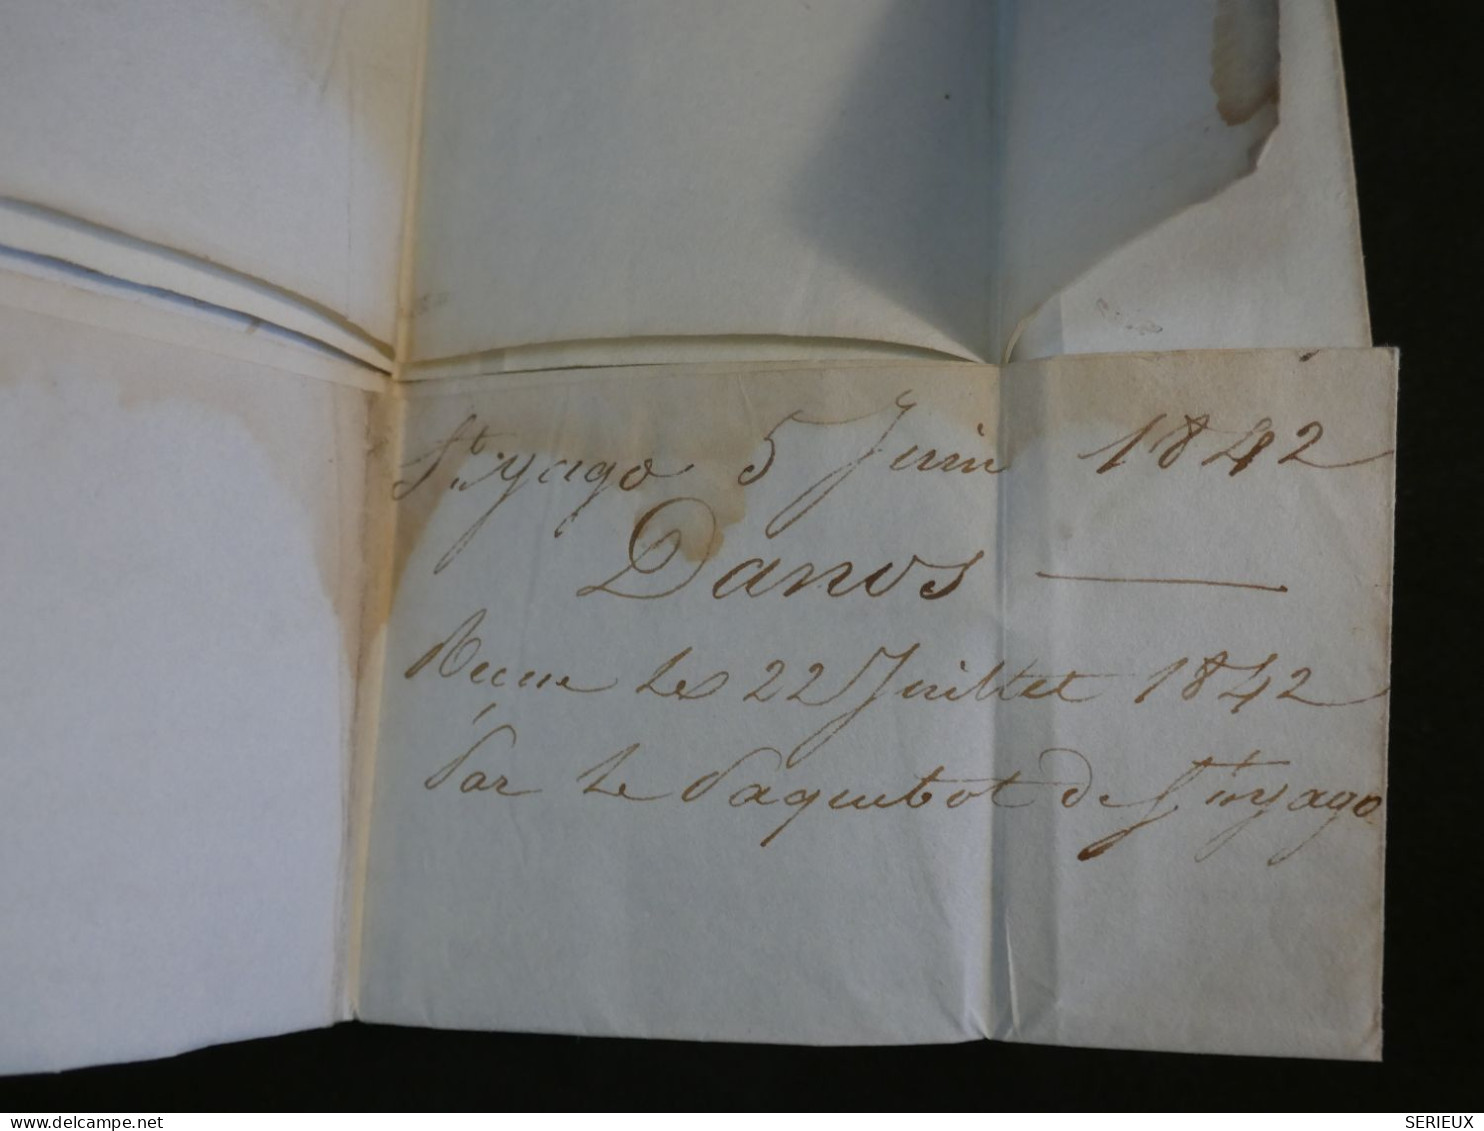 St yago 5 Juin 1842
Danos —
Reçue le 22 Juillet 1842
Par le Paquebot de St yago
SERIEUX
www.delcampe.net